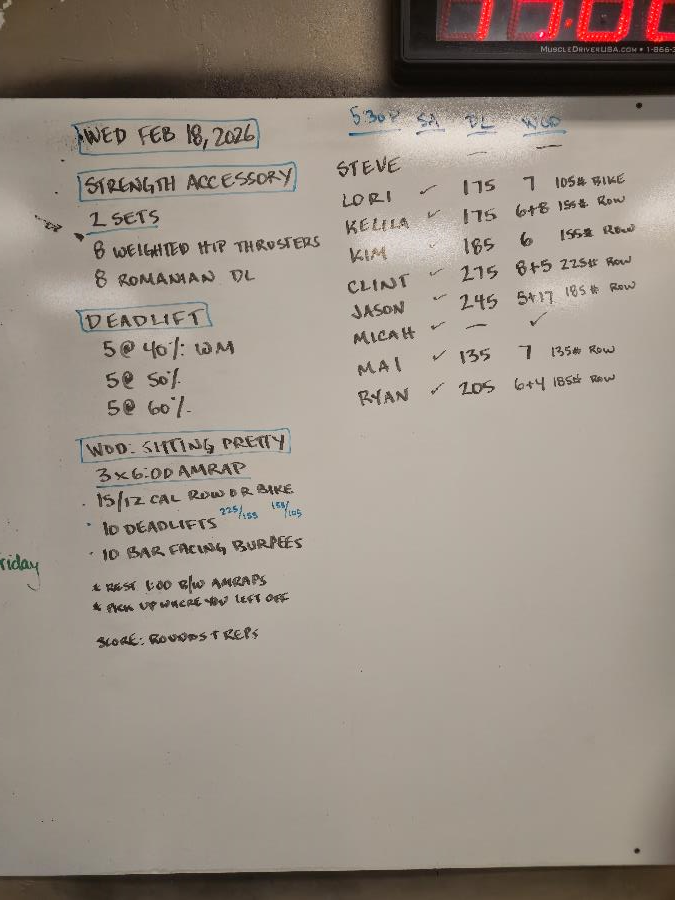 MUSCLEDRIVERUSA.COM • 1-866-3
WED FEB 18, 2026
STRENGTH ACCESSORY
2 SETS
8 WEIGHTED HIP THRUSTERS
8 ROMANIAN DL
DEADLIFT
5@ 40%: WM
5@ 50%
5@ 60%
WOD: SITTING PRETTY
3x6:00 AMRAP
· 15/12 CAL ROW OR BIKE
· 10 DEADLIFTS 225/155 155/105
· 10 BAR FACING BURPEES
* REST 1:00 B/W AMRAPS
* PICK UP WHERE YOU LEFT OFF
SCORE: ROUNDS + REPS
riday
5:30P SA DL WOD
STEVE — —
LORI ✓ 175 7 105# BIKE
KELLA ✓ 175 6+8 155# ROW
KIM ✓ 185 6 155# ROW
CLINT ✓ 275 8+5 225# ROW
JASON ✓ 245 5+17 185# ROW
MICAH ✓ — ✓
MAI ✓ 135 7 135# ROW
RYAN ✓ 205 6+4 185# ROW